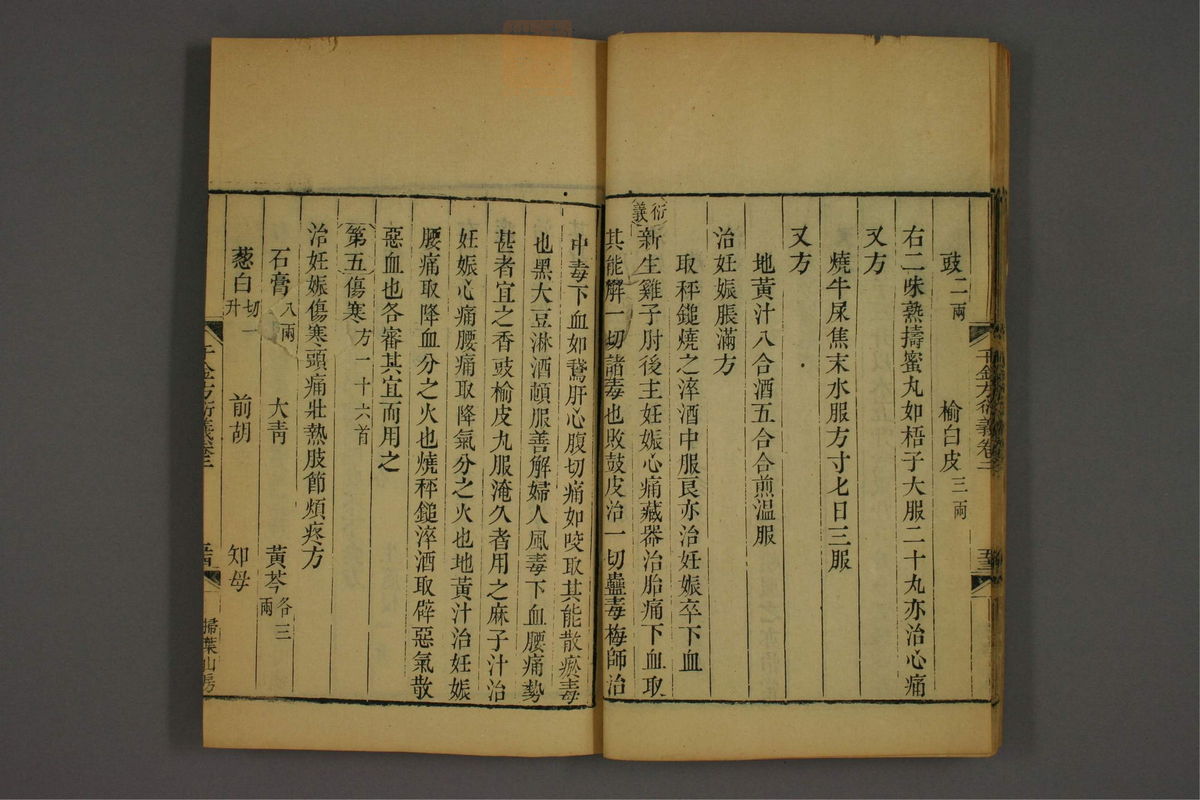 豉二兩 榆白皮三兩
右二味熟擣蜜丸如梧子大服二十丸亦治心痛
又方
燒牛屎焦末水服方寸匕日三服
又方
地黃汁八合酒五合合煎温服
治妊娠脹滿方
取秤鎚燒之淬酒中服良亦治妊娠卒下血
衍義
新生雞子肘後主妊娠心痛藏器治胎痛下血取
其能解一切諸毒也敗鼓皮治一切蠱毒梅師治
千金方衍義卷二
中毒下血如鵞肝心腹切痛如咬取其能散瘀毒
也黑大豆淋酒頓服善解婦人風毒下血腰痛勢
甚者宜之香豉榆皮丸服淹久者用之麻子汁治
妊娠心痛腰痛取降氣分之火也地黃汁治妊娠
腰痛取降血分之火也燒秤鎚淬酒取辟惡氣散
惡血也各審其宜而用之
第五傷寒方一十六首
治妊娠傷寒頭痛壯熱肢節煩疼方
石膏八兩 大青 黃芩各三兩
葱白切一升 前胡 知母
千金方衍義卷二 掃葉山房